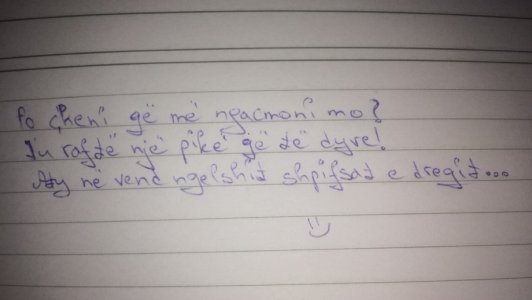 Po çheni që më ngacmoni mo?
Ju raftë një pikë që të dyve!
Aty në vend ngelshit shpifsat e dregit...
:)